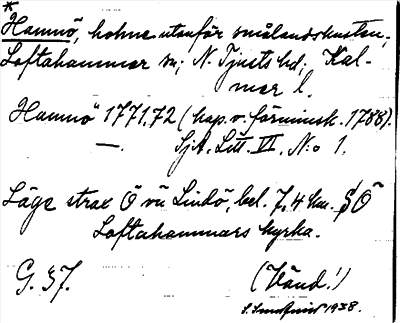 *
Hamnö, holme utanför smålandskusten;
Loftahammar sn; N. Tjusts hd; Kal-
mar l.
Hamnö 1771.72 (kap. v. förminsk. 1788).
—. SjA. Litt. VI, N:o 1.
Läge strax Ö om Lindö, bel. 7,4 km. SÖ
Loftahammars kyrka.
G. 37.
(Vänd!)
S. Sundqvist 1938.